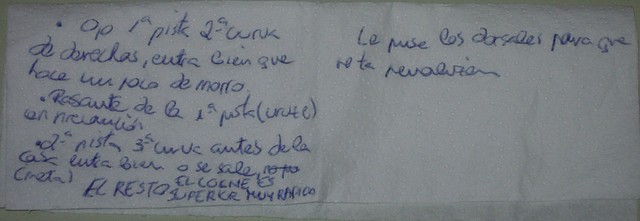 • Op 1ª pista 2ª curva
de derechas, entra bien que
hace un poco de morro.
• Rasante de la 1ª pista (cruce)
con precaución
• 2ª pista 3ª curva antes de la
casa entra bien o se sale
(meta)
EL RESTO EL COCHE ES
SUPER MUY RAPIDO
Le puse los dorsales para que
no te revuelvan